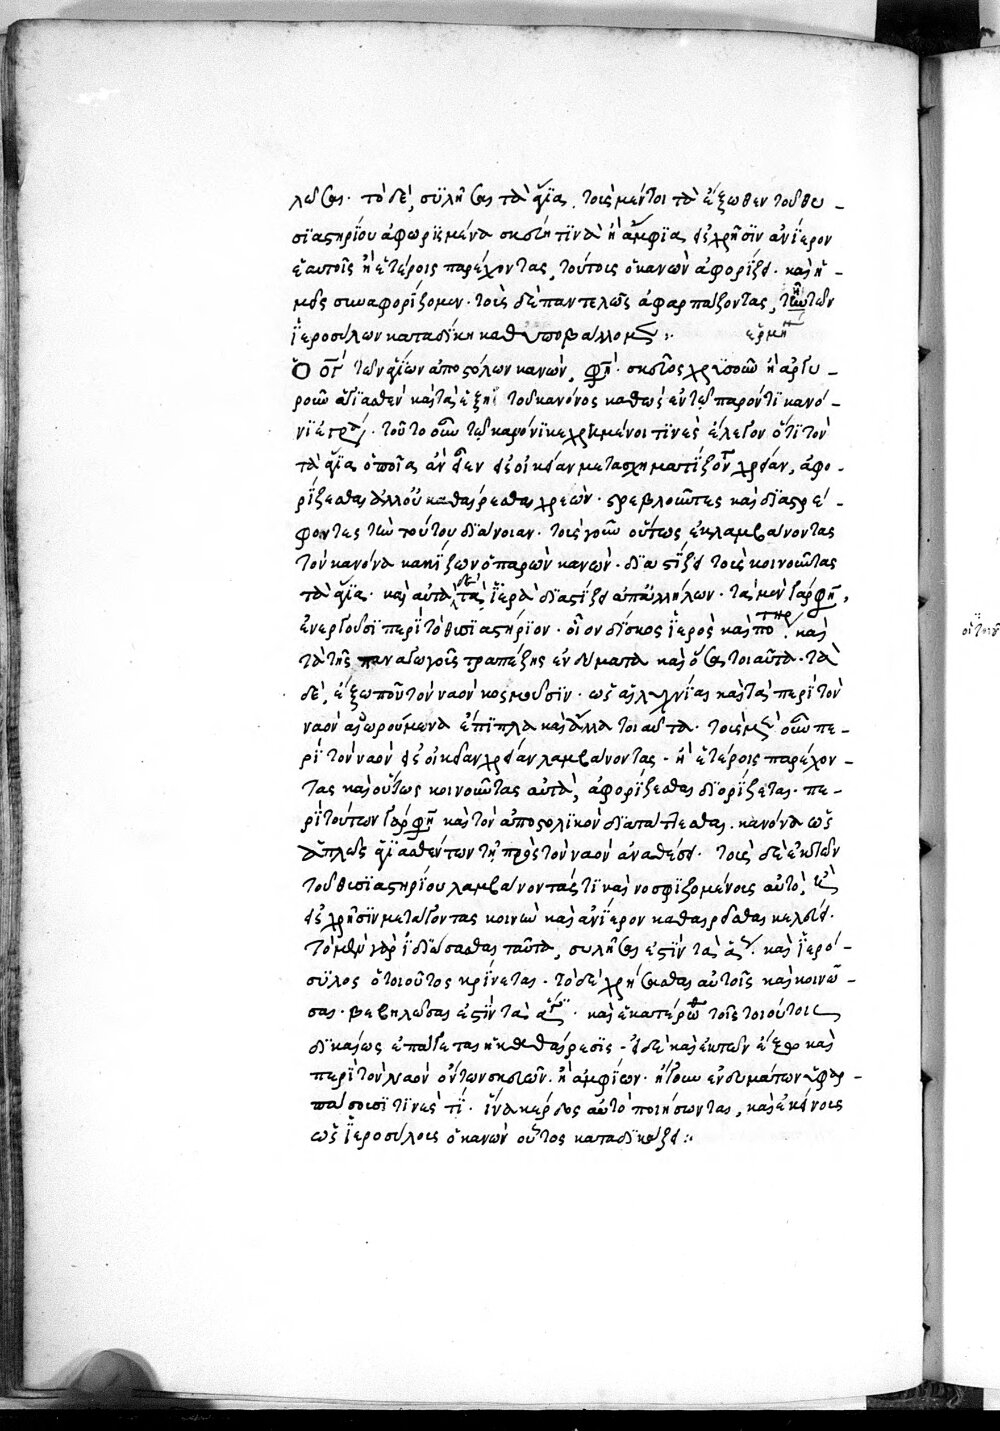 λεῦσαι· τὸ δὲ, συλῆσαι τὰ ἅγια. τοὺς μέντοι τὰ ἔξωθεν τοῦ θυ -
σιαστηρίου ἀφωρισμένα σκεύη τινὰ ἢ ἄμφια εἰς χρῆσιν ἀνίερον
ἑαυτοῖς ἢ ἑτέροις παρέχοντας, τούτους ὁ κανὼν ἀφορίζει· καὶ ἡ -
μεῖς συναφορίζομεν· τοὺς δὲ παντελῶς ἀφαρπάζοντας, τῇ τῶν
ἱεροσύλων καταδίκῃ καθυποβάλλομεν:·
ἑρμη
Ὁ ογʹ τῶν ἁγίων ἀποστόλων κανών, φησί· σκεῦος χρυσοῦν ἢ ἀργυ -
ροῦν ἁγιασθὲν καὶ τὰ ἑξῆς τοῦ κανόνος καθὼς ἐν τῷ παρόντι κανό -
νι ἐγράφη· τούτῳ οὖν τῷ κανόνι κεχρημένοι τινὲς ἔλεγον ὅτι τὸν
τὰ ἅγια ὁποῖα ἂν εἶεν εἰς οἰκείαν μετασχηματίζοντα χρείαν, ἀφο -
ρίζεσθαι ἀλλ' οὐ καθαιρεῖσθαι χρεών· στρεβλοῦντες καὶ διαστρέ -
φοντες τὴν τούτου διάνοιαν· τοὺς γοῦν οὕτως ἐκλαμβάνοντας
τὸν κανόνα κανονίζων ὁ παρὼν κανών· διαστίζει τοὺς κοινοῦντας
τὰ ἅγια· καὶ αὐτὰ δὲ τὰ ἱερὰ διαστίζει ἀπ' ἀλλήλων· τὰ μὲν γάρ φησιν,
ἐνεργοῦσι περὶ τὸ θυσιαστήριον· οἷον δίσκος ἱερὸς καὶ ποτήριον καὶ
τὰ τῆς παναγωγοῦς τραπέζης ἐνδύματα καὶ ὅσα τοιαῦτα· τὰ
δὲ, ἔξω που τὸν ναὸν κοσμοῦσιν· ὡς αἱ λυχνίαι καὶ τὰ περὶ τὸν
ναὸν αἰωρούμενα ἔπιπλα καὶ ἄλλα τοιαῦτα· τοὺς μὲν οὖν πε -
ρὶ τὸν ναὸν εἰς οἰκείαν χρείαν λαμβάνοντας· ἢ ἑτέροις παρέχον -
τας καὶ οὕτως κοινοῦντας αὐτὰ, ἀφορίζεσθαι διορίζεται· πε -
ρὶ τούτων γάρ φησι καὶ τὸν ἀποστολικὸν διατάττεσθαι κανόνα ὡς
ἁπλῶς ἁγιασθέντων τῇ πρὸς τὸν ναὸν ἀναθέσει· τοὺς δὲ ἐκ τῶν
τοῦ θυσιαστηρίου λαμβάνοντάς τι καὶ νοσφιζομένους αὐτό, καὶ
εἰς χρῆσιν μετάγοντας κοινὴν καὶ ἀνίερον καθαιρεῖσθαι κελεύει·
τὸ μὲν γὰρ ἰδιώσασθαι ταῦτα, συλῆσαι ἐστὶν τὰ ἅγια· καὶ ἱερό -
συλος ὁ τοιοῦτος κρίνεται· τὸ δὲ χρήσασθαι αὐτοῖς καὶ κοινῶ -
σαι· βεβηλῶσαι ἐστὶν τὰ ἅγια· καὶ ἑκατέρωθεν τοῖς τοιούτοις
δικαίως ἐπάγεται ἡ καθαίρεσις· εἰ δὲ καὶ ἐκ τῶν ἔξω καὶ
περὶ τὸν ναὸν ὄντων σκευῶν· ἢ ἀμφίων· ἤγουν ἐνδυμάτων ὑφαρ -
πάσουσί τινές τι· ἵνα κέρδος αὐτὸ ποιήσωνται, καὶ ἐκείνους
ὡς ἱεροσύλους ὁ κανὼν οὗτος καταδικάζει:·